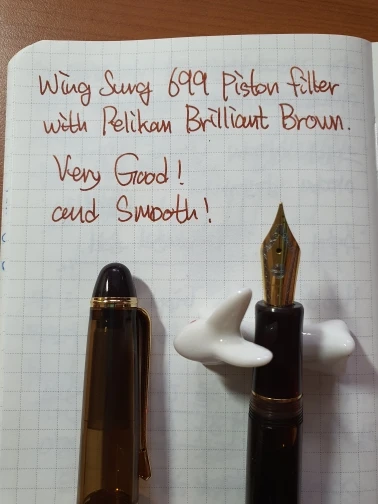 Wing Sung 699 Piston filler
with Pelikan Brilliant Brown.
Very Good!
and Smooth!